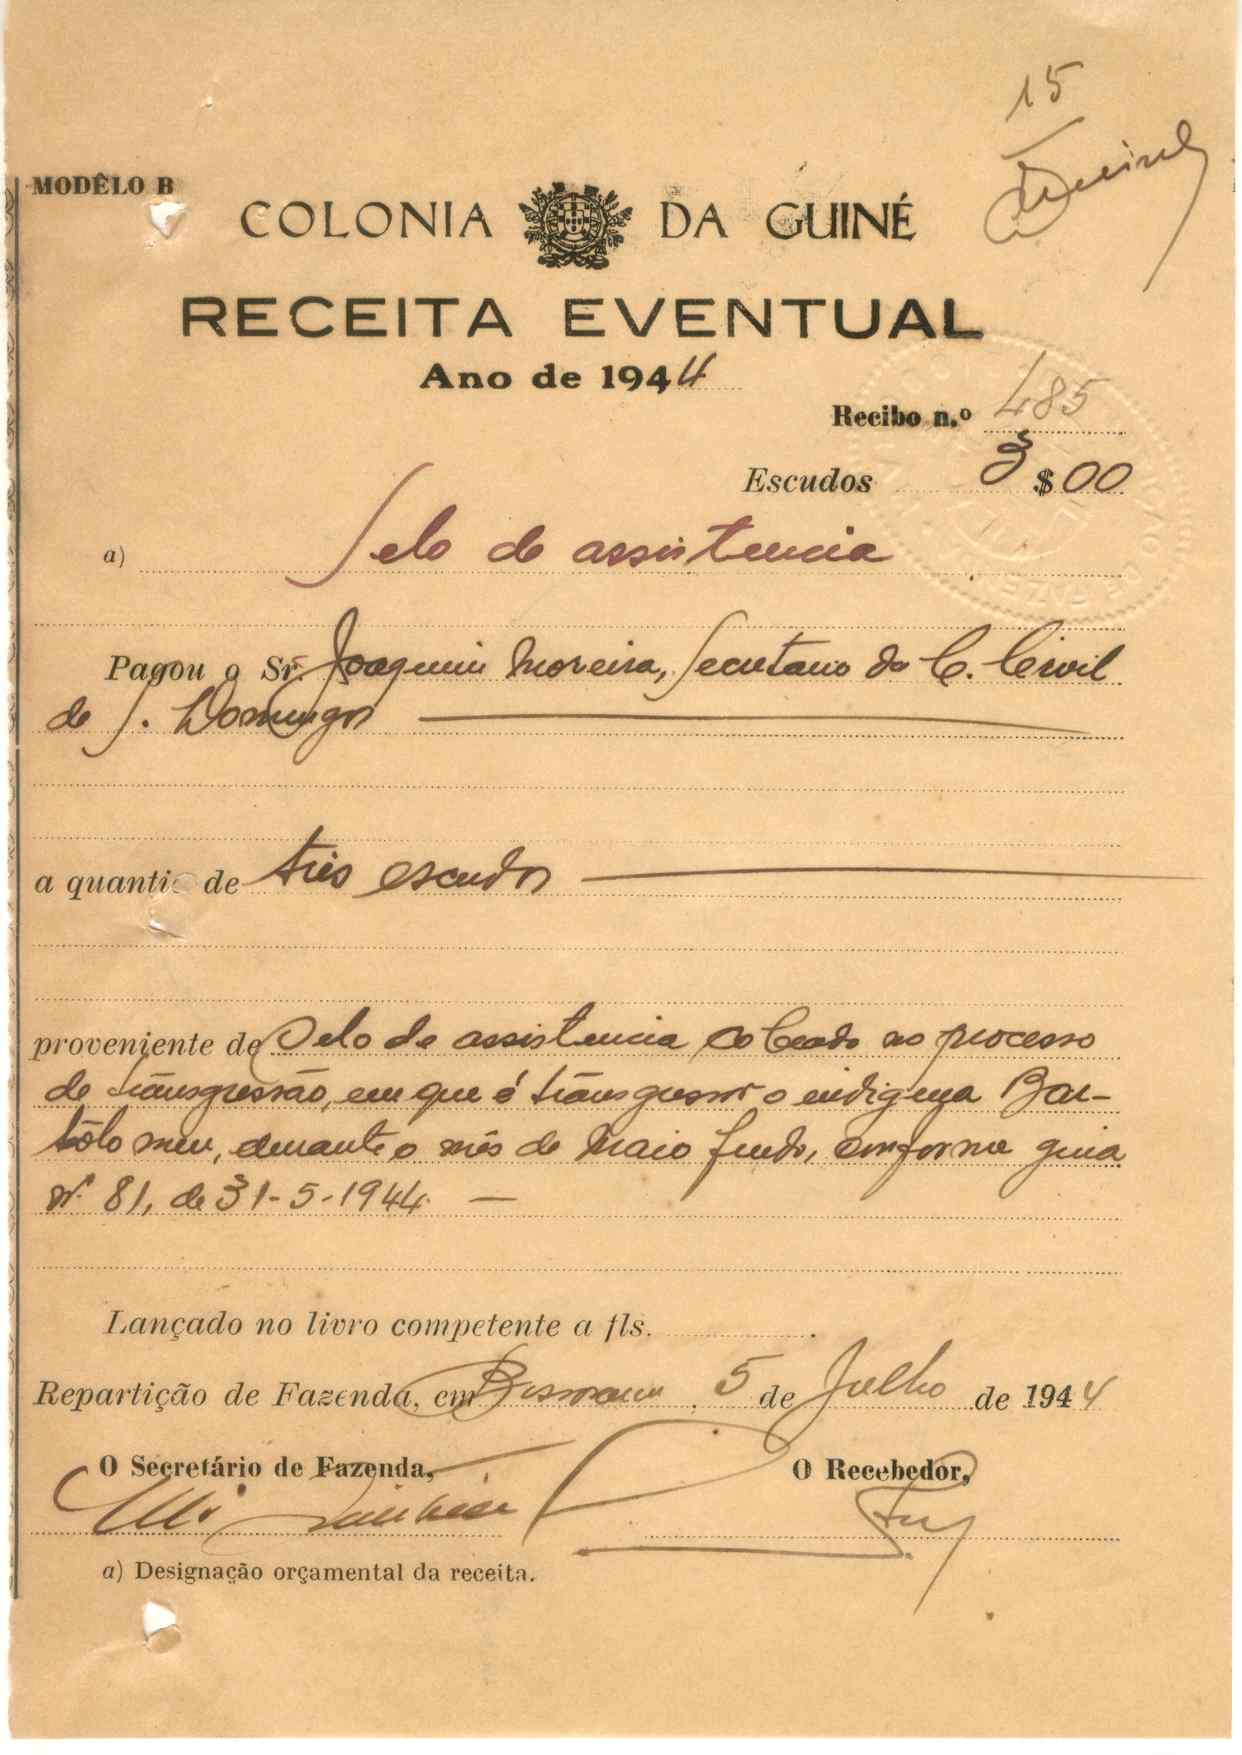 15
MODÊLO B
COLONIA DA GUINÉ
RECEITA EVENTUAL
Ano de 1944
Recibo n.º 485
Escudos 3$00
a) Selo de assistencia
Pagou o Sr. Joaquim Moreira, Secretario da C. Civil
de S. Domingos
a quantia de três escudos
proveniente de Selo de assistencia cobrado no processo
de transgressão, em que é transgressor o indigena Bar-
tolomeu, durante o mês de Maio findo, conforme guia
nº 81, de 31-5-1944.
Lançado no livro competente a fls.
Repartição de Fazenda, em Bissau, 5 de Julho de 1944
O Secretário de Fazenda, O Recebedor,
a) Designação orçamental da receita.